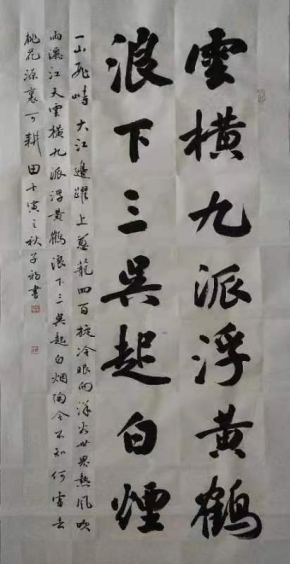 雲橫九派浮黃鶴
浪下三吳起白煙
一山飛峙大江邊躍上蔥蘢四百旋冷眼向洋看世界熱風吹
雨灑江天雲橫九派浮黃鶴浪下三吳起白烟陶令不知何處去
桃花源裏可耕田壬寅之秋子書